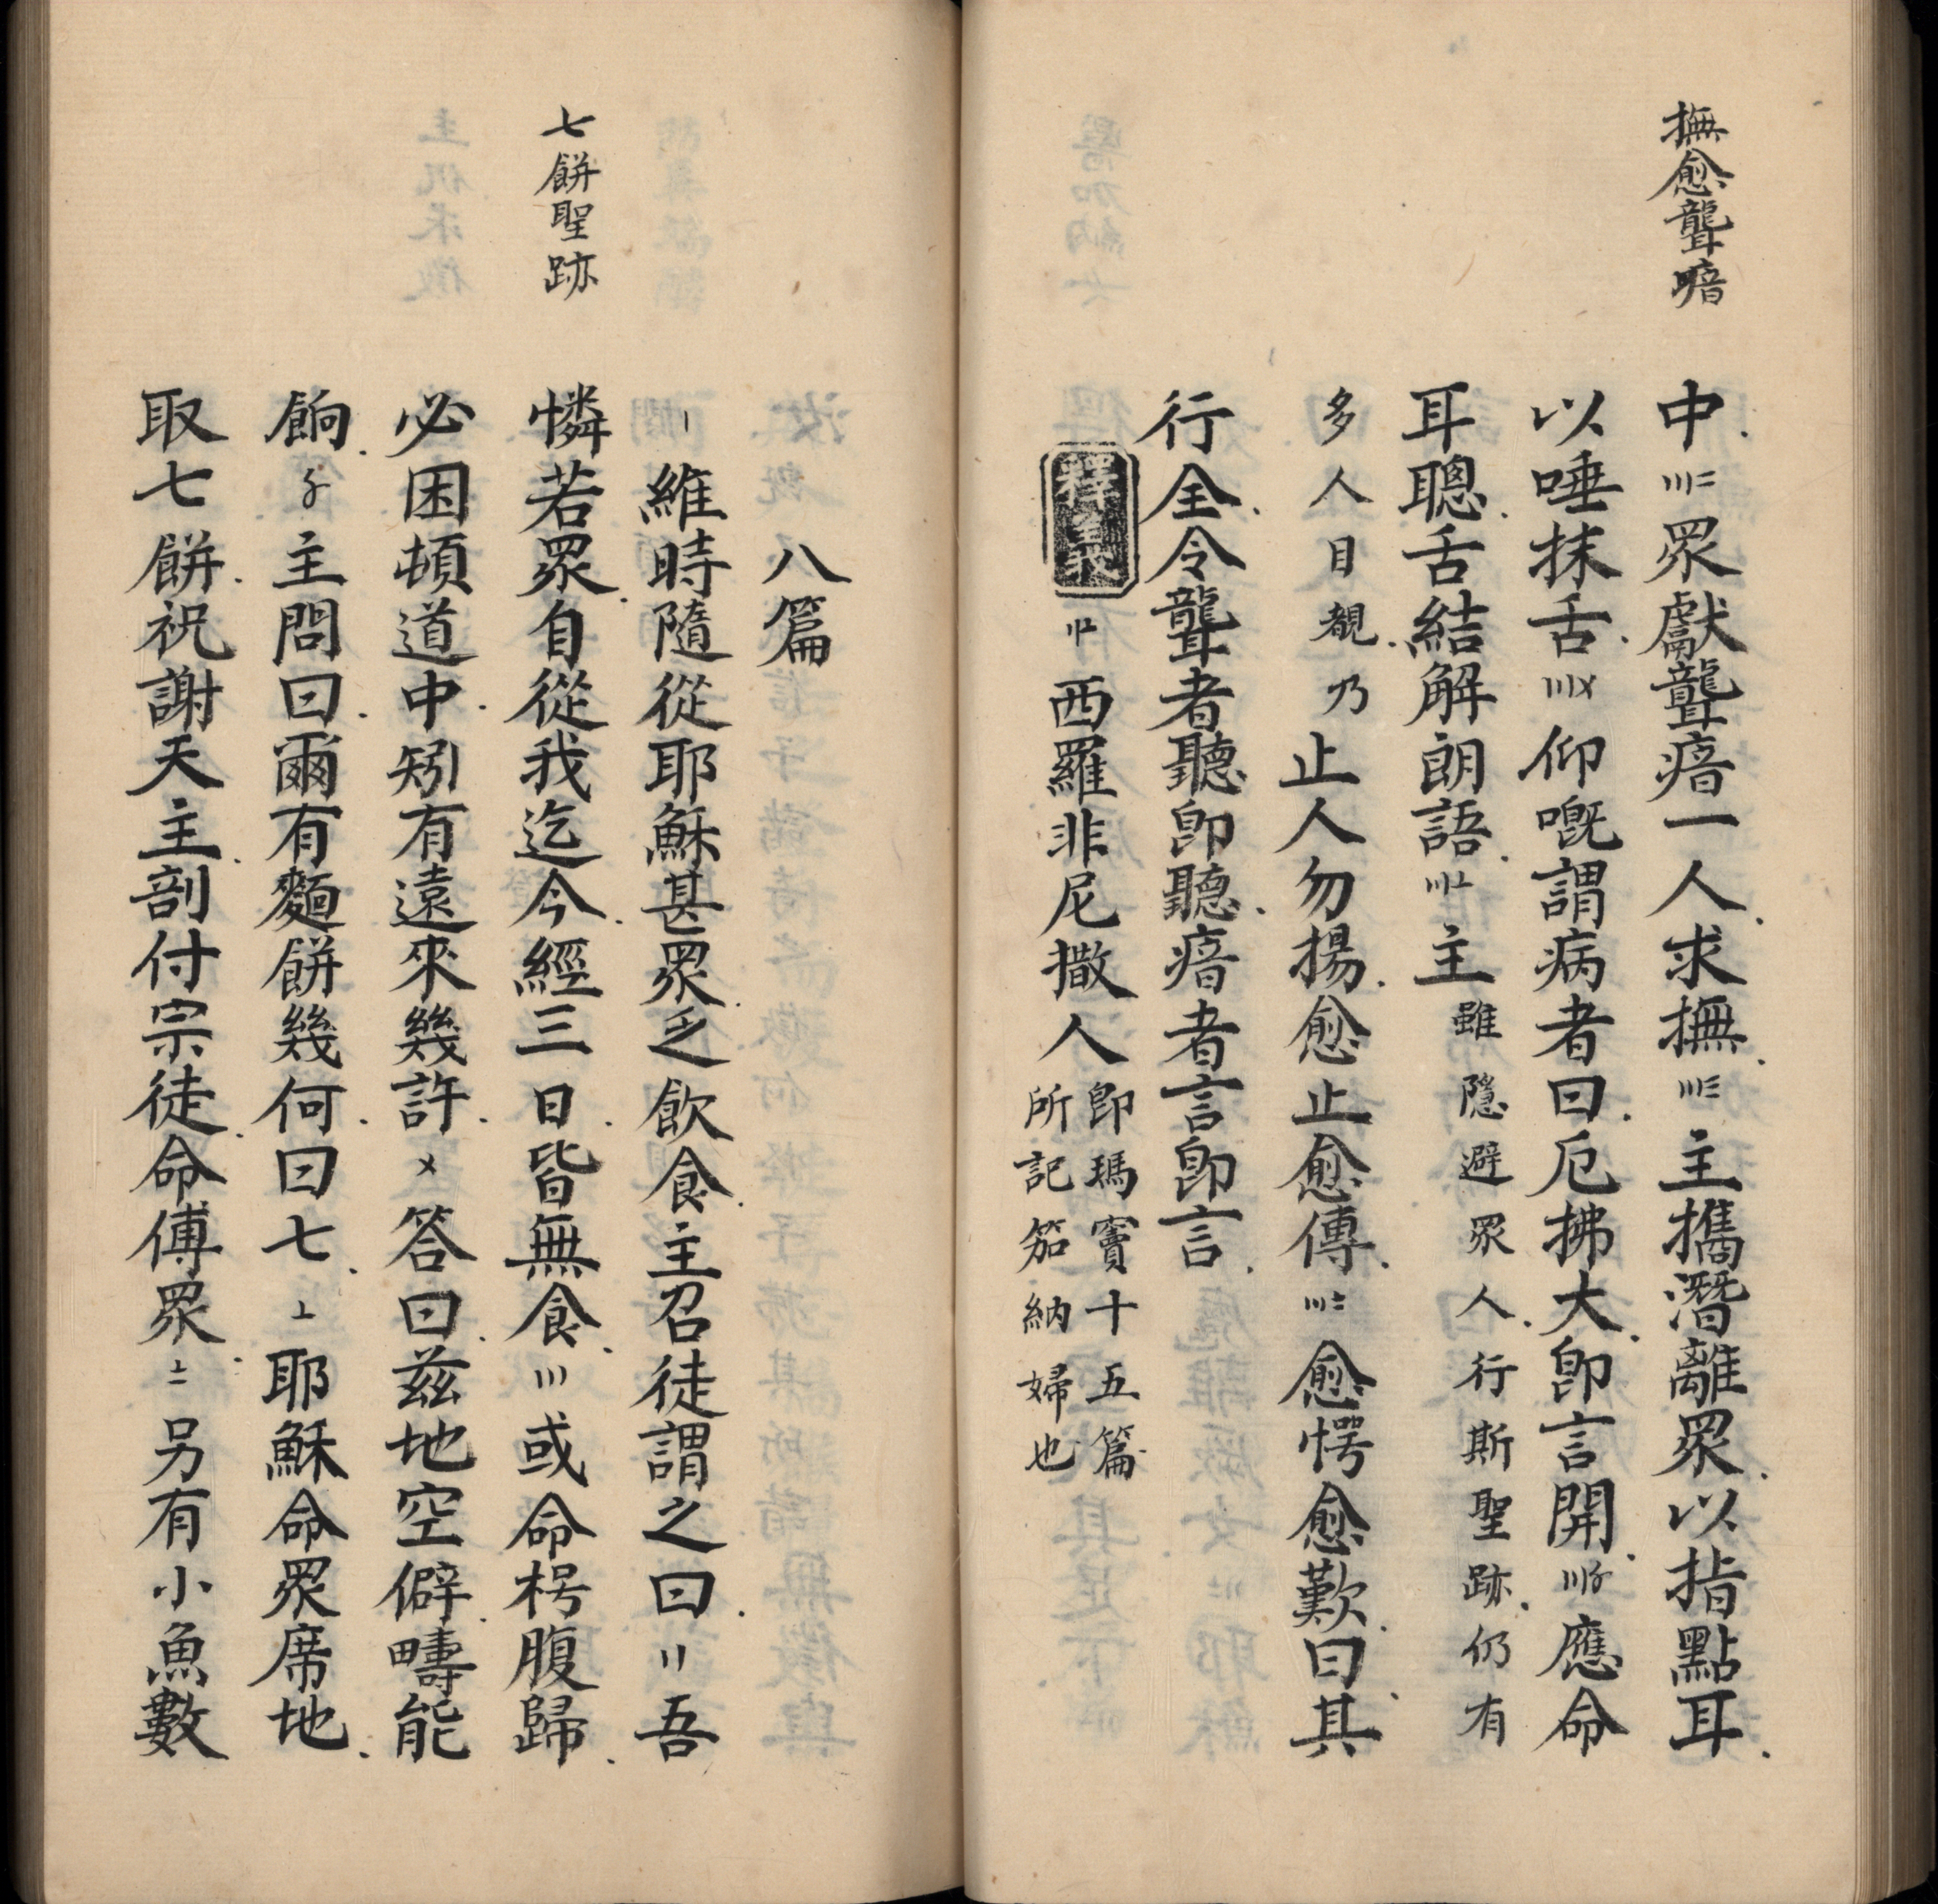 撫愈聾喑
中〣二眾獻聾瘖一人求撫〣三主攜潛離眾以指點耳
以唾抹舌〣〤仰嘅謂病者曰厄拂大即言開〣〥應命
耳聰舌結解朗語〣〦主雖隱避眾人行斯聖跡仍有
多人目覩乃止人勿揚愈止愈傳〣〧愈愕愈歎曰其
行全令聾者聽即聽瘖者言即言
釋義〢〦西羅非尼撒人即瑪竇十五篇
所記笳納婦也
八篇
七餅聖跡
〡維時隨從耶穌甚眾乏飲食主召徒謂之曰〢吾
憐若眾自從我迄今經三日皆無食〣或命枵腹歸
必困頓道中矧有遠來幾許〤答曰茲地空僻疇能
餉〥主問曰爾有麵餅幾何曰七〦耶穌命眾席地
取七餅祝謝天主剖付宗徒命傅眾〧另有小魚數